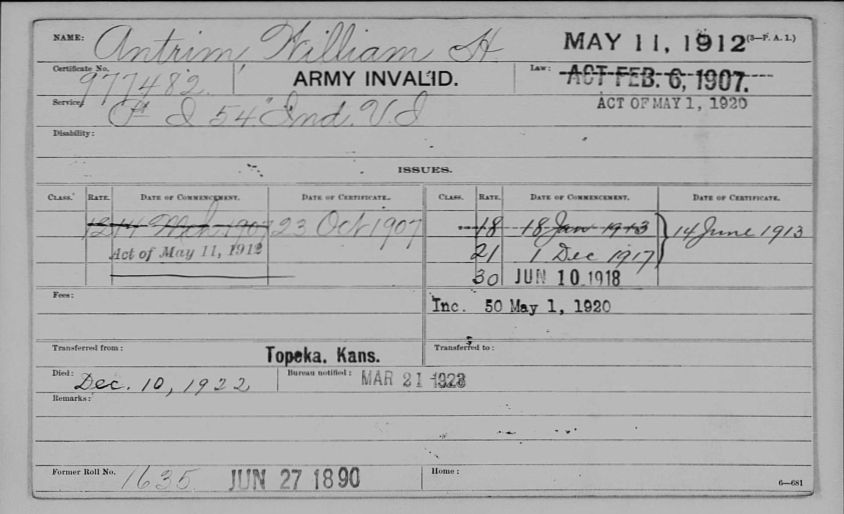 NAME: Antrim, William H MAY 11, 1912 (3—P. A. 1.)
Certificate No. 977482. ARMY INVALID. Law: ACT FEB. 6, 1907.
ACT OF MAY 1, 1920
Service: F I 54" Ind. V. I
Disability:
ISSUES.
CLASS. RATE. DATE OF COMMENCEMENT. DATE OF CERTIFICATE. CLASS. RATE. DATE OF COMMENCEMENT. DATE OF CERTIFICATE.
12 14 Mch 1907 23 Oct 1907 18 18 Jan 1913 14 June 1913
Act of May 11, 1912 21 1 Dec 1917
30 JUN 10 1918
Fees: Inc. 50 May 1, 1920
Transferred from: Topeka, Kans. Transferred to:
Died: Dec. 10, 1922 Bureau notified: MAR 21 1923
Remarks:
Former Roll No. 1635 JUN 27 1890 Home:
6—681